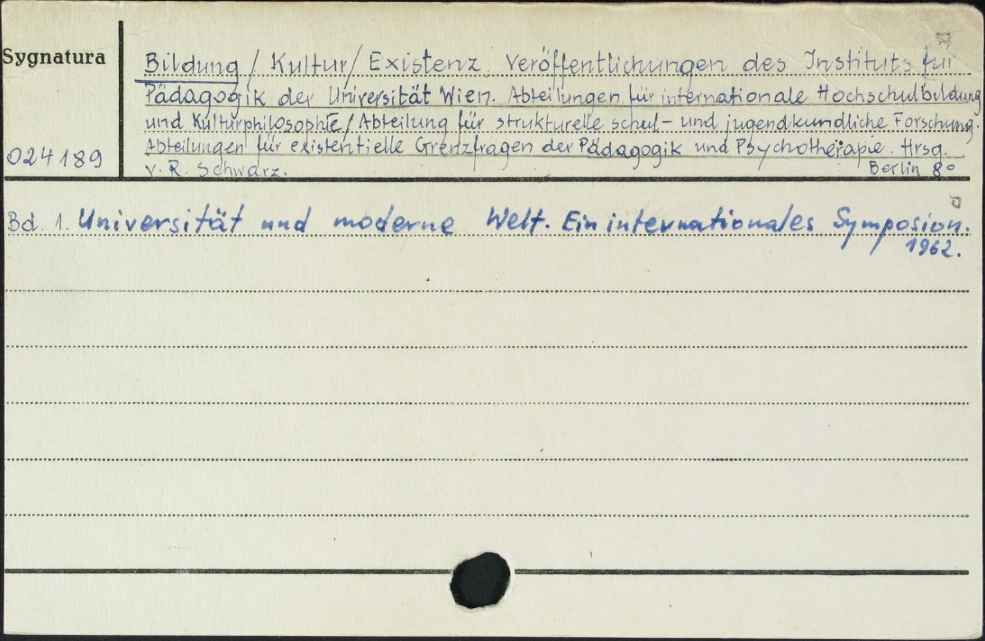 Sygnatura
024189
Bildung / Kultur / Existenz. Veröffentlichungen des Instituts für
Pädagogik der Universität Wien. Abteilungen für internationale Hochschulbildung
und Kulturphilosophie / Abteilung für strukturelle schul- und jugendkundliche Forschung.
Abteilungen für existentielle Grenzfragen der Pädagogik und Psychotherapie. Hrsg.
v. R. Schwarz. Berlin 8°
Bd. 1. Universität und moderne Welt. Ein internationales Symposion.
1962.